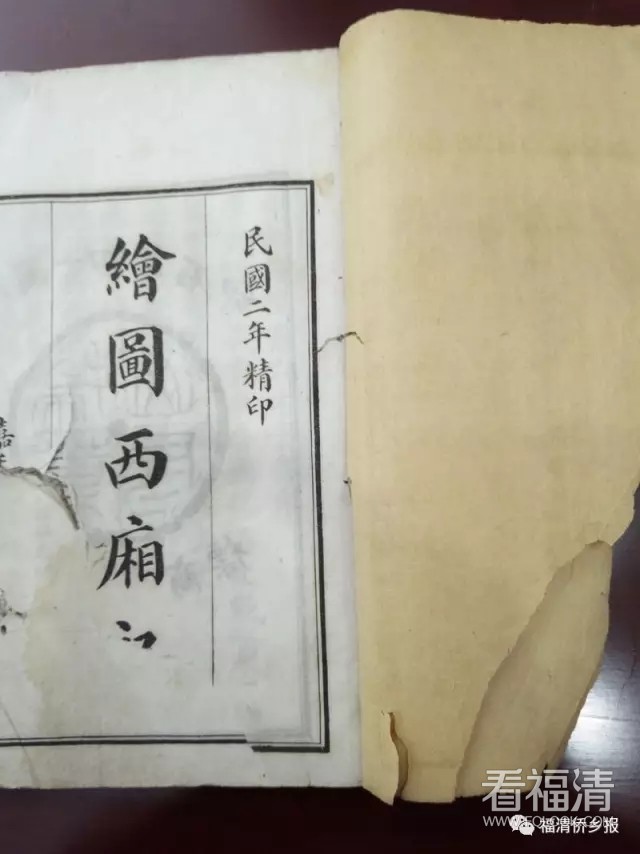 民國二年精印
繪圖西廂
嘉
看福清
FQLOOK.COM
福清侨乡报